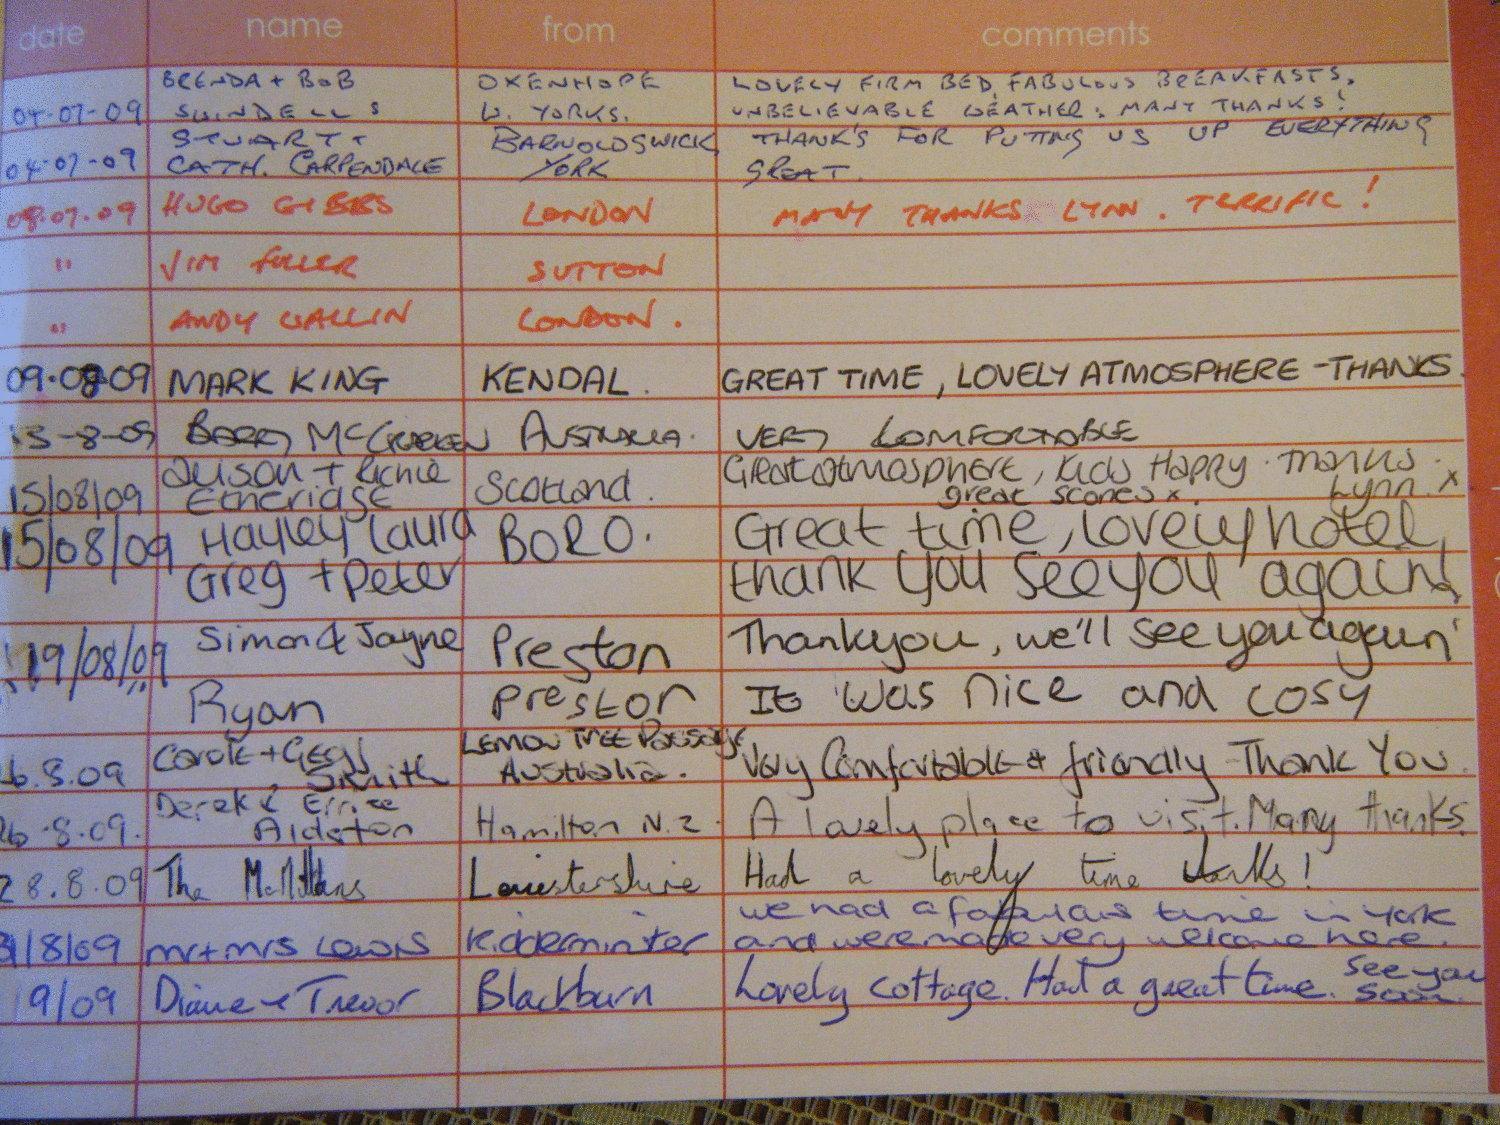 date name from comments
BRENDA + BOB OXENHOPE LOVELY FIRM BED, FABULOUS BREAKFASTS,
04-07-09 SWINDELLS W. YORKS. UNBELIEVABLE WEATHER. MANY THANKS!
STUART + BARNOLDSWICK THANK'S FOR PUTTING US UP EVERYTHING
04-07-09 CATH. CARPENDALE YORK GREAT.
08.07.09 HUGO GIBBS LONDON MANY THANKS LYNN. TERRIFIC!
" JIM FULLER SUTTON
" ANDY WALLIN LONDON.
09.08.09 MARK KING KENDAL. GREAT TIME, LOVELY ATMOSPHERE - THANKS.
13-8-09 BARRY McCRACKEN AUSTRALIA. VERY COMFORTABLE
Alison + Richie Great atmosphere, Kids Happy. Thanks
15/08/09 Etheridge Scotland. great scones x. Lynn. x
15/08/09 Hayley Laura BORO. Great time, lovely hotel,
Greg + Peter thank you see you again!
19/08/09 Simon & Jayne Preston Thankyou, we'll see you again'
Ryan Preston It was nice and cosy
Carole + Gerry LEMON TREE Passage
6.8.09 Smith Australia. Very Comfortable & friendly - Thank You.
Derek &
26.8.09. Hamilton N.Z. A lovely place to visit. Many thanks.
28.8.09 The McMillans Leicestershire Had a lovely time thanks!
we had a fabulous time in york
31/8/09 mr + mrs Lewis Kidderminster and were made very welcome here.
9/09 Diane & Trevor Blackburn Lovely cottage. Had a great time. see you
soon.